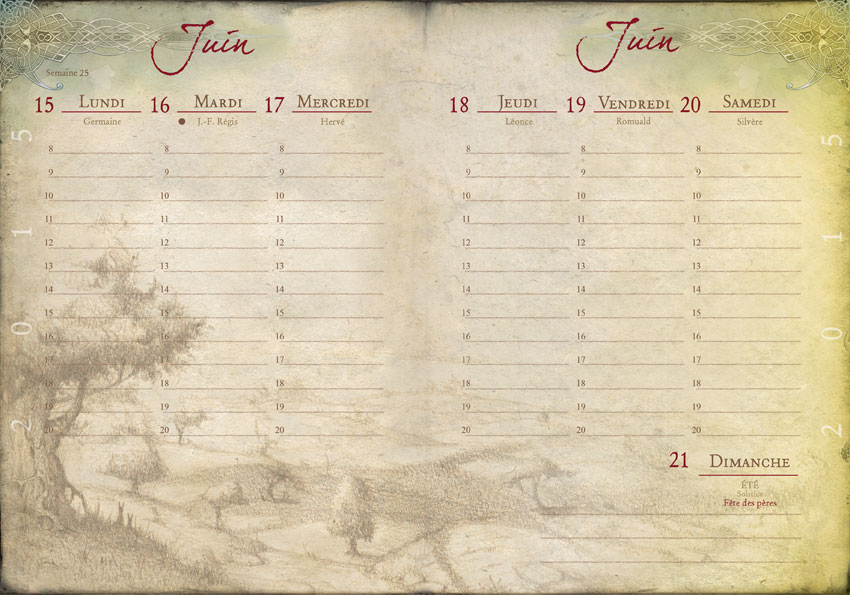 Juin
Semaine 25
15 Lundi 16 Mardi 17 Mercredi
Germaine J.-F. Régis Hervé
8 8 8
9 9 9
10 10 10
11 11 11
12 12 12
13 13 13
14 14 14
15 15 15
16 16 16
17 17 17
18 18 18
19 19 19
20 20 20
2015
Juin
18 Jeudi 19 Vendredi 20 Samedi
Léonce Romuald Silvère
8 8 8
9 9 9
10 10 10
11 11 11
12 12 12
13 13 13
14 14 14
15 15 15
16 16 16
17 17 17
18 18 18
19 19 19
20 20 20
21 Dimanche
ÉTÉ
Solstice
Fête des pères
2015